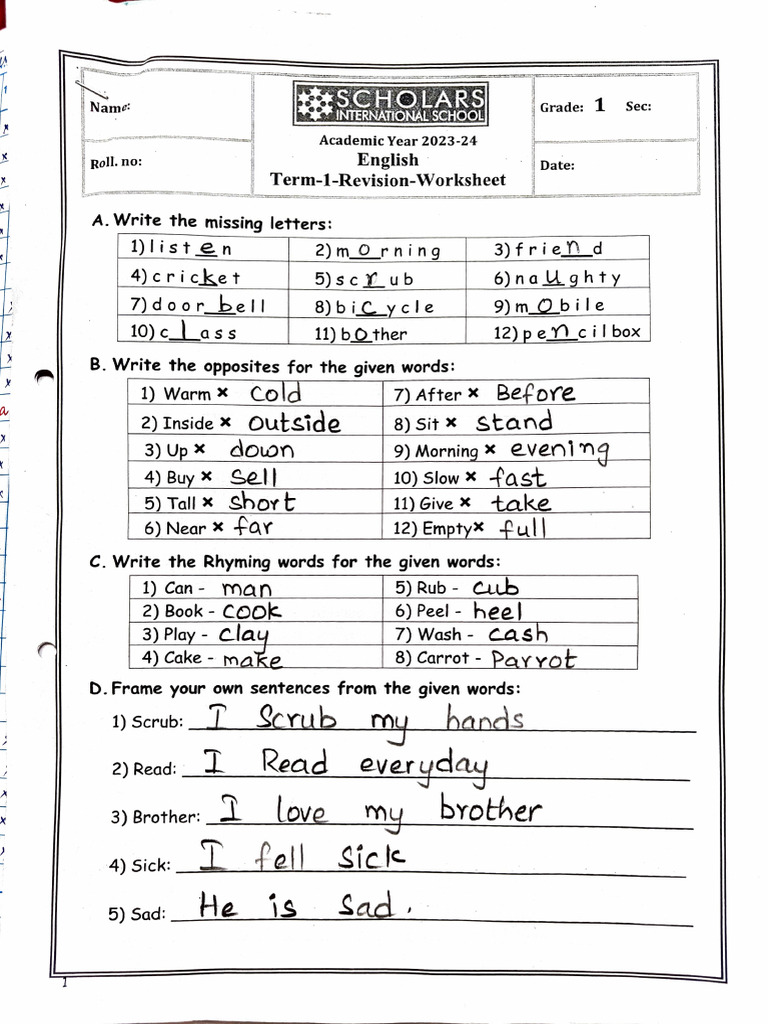 Name:
SCHOLARS
INTERNATIONAL SCHOOL
Grade: 1 Sec:
Academic Year 2023-24
Roll. no:
English
Date:
Term-1-Revision-Worksheet
A. Write the missing letters:
1) l i s t e n 2) m o r n i n g 3) f r i e n d
4) c r i c k e t 5) s c r u b 6) n a u g h t y
7) d o o r b e l l 8) b i c y c l e 9) m o b i l e
10) c l a s s 11) b o t h e r 12) p e n c i l b o x
B. Write the opposites for the given words:
1) Warm × Cold 7) After × Before
2) Inside × outside 8) Sit × stand
3) Up × down 9) Morning × evening
4) Buy × Sell 10) Slow × fast
5) Tall × short 11) Give × take
6) Near × far 12) Empty× full
C. Write the Rhyming words for the given words:
1) Can - man 5) Rub - cub
2) Book - cook 6) Peel - heel
3) Play - clay 7) Wash - cash
4) Cake - make 8) Carrot - Parrot
D. Frame your own sentences from the given words:
1) Scrub: I Scrub my hands
2) Read: I Read everyday
3) Brother: I love my brother
4) Sick: I fell sick
5) Sad: He is sad.
1